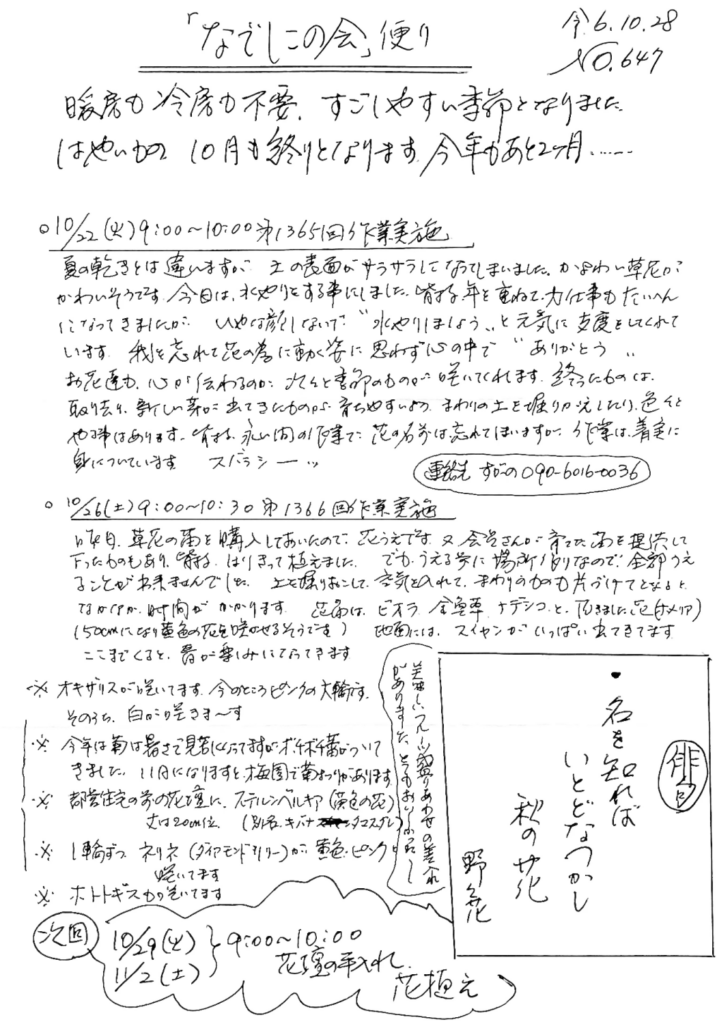 「なでしこの会」便り
令6.10.28
NO.647
暖房も冷房も不要、すごしやすい季節となりました
はやいもので10月も終りとなります。今年もあと2ヶ月……
○10/22(火)9:00〜10:00第1365回作業実施
夏の乾きとは違いますが、土の表面がサラサラになってしまいました。かよわい草花が
かわいそうです。今日は、水やりをする事にしました。皆さん年を重ねて、力仕事もたいへん
になってきましたが、いやな顔しないで"水やりしましょう"と元気に支度をしてくれて
います。我を忘れて花の為に動く姿に思わず心の中で"ありがとう"
お花達も、心が伝わるのか、次々と季節のものが咲いてくれます。終ったものは、
取り去り、新しい芽が出てきたものが育ちやすいよう、まわりの土を掘りかえしたり、色々と
やる事はあります。皆さん、永い間の作業で、花の名前は忘れてしまいますが、作業は、着実に
身についています スバラシー
連絡先 すがの 090-6016-0036
○10/26(土)9:00〜10:30第1366回作業実施
昨日、草花の苗を購入しておいたので、花うえです。又会員さんが育てた苗を提供して
下さったものもあり、皆さん、はりきって植えました。でも、うえる前に場所作りなので、全部うえ
ることが出来ませんでした。土を掘りおこして、空気を入れて、まわりのものも片づけてとなると
なかなか時間がかかります。花苗は、ビオラ 金魚草 ナデシコ、と、
(150cmになり黄色の花を咲かせるそうです) 地面には、スイセンがいっぱい出てきてます
ここまでくると、春が楽しみになってきます
※ オキザリスが咲いてます。今のところピンクの大輪です。
そのうち、白が咲きま〜す
※ 今年は菊は暑さで見苦しいですがボチボチ蕾がついて
きました。11月になりますと梅園で菊まつりがあります
※ 都営住宅の前の花壇に、ステルンベルギア(黄色の花)
丈は20cm位。(別名 キバナタマスダレ)
※ 1輪ずつ ネリネ(ダイアモンドリリー)が黄色・ピンクと
咲いてます
※ ホトトギスも咲いてます
美味しいフルーツ盛りあわせの差入れ
がありました。とてもおいしかったです
俳句
・名を知れば
いとどなつかし
秋の草花
野色花
次回
10/29(火)
11/2(土)
9:00〜10:00
花壇の手入れ、
花植え